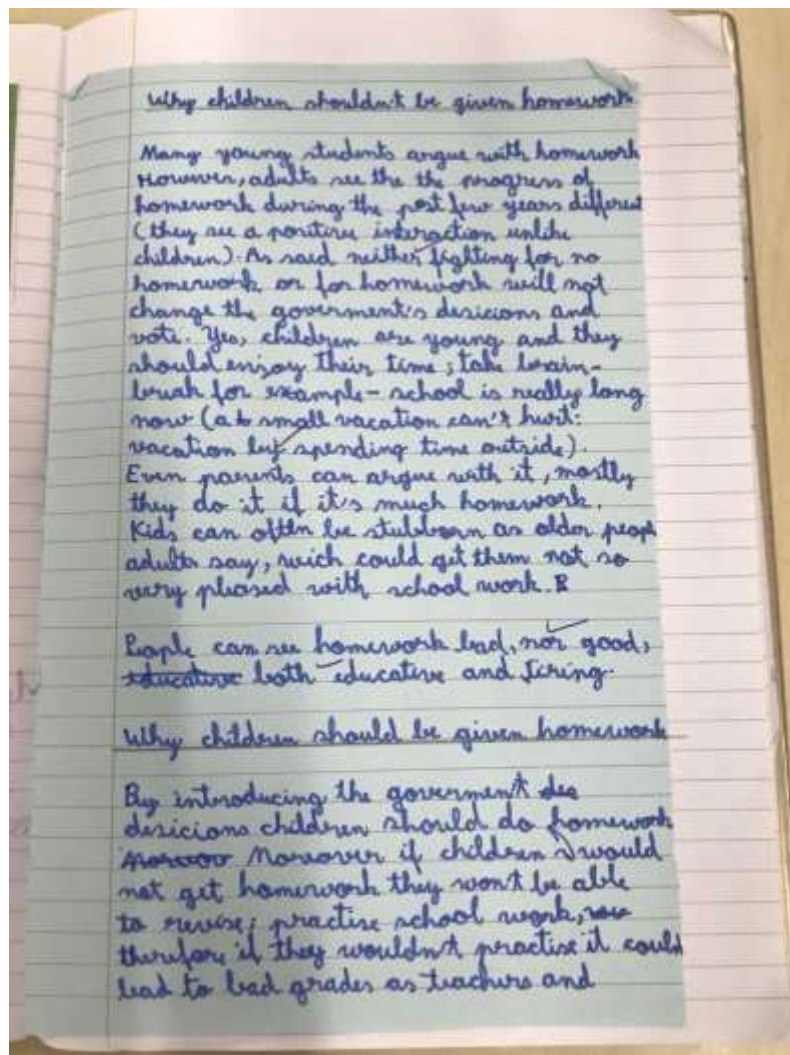 Why children shouldn't be given homework
Many young students argue with homework
However, adults see the the progress of
homework during the past few years different
(they see a positive interaction unlike
children). As said neither fighting for no
homework or for homework will not
change the goverment's desicions and
vote. Yes, children are young and they
should enjoy their time, take brain-
break for example - school is really long
now (a small vacation can't hurt:
vacation by spending time outside).
Even parents can argue with it, mostly
they do it if it's much homework.
Kids can often be stubborn as older peopl
adults say, wich could get them not so
very pleased with school work.
People can see homework bad, nor good,
educative both educative and tiring.
Why children should be given homework
By introducing the goverment des
desicions children should do homework
Moreover if children would
not get homework they won't be able
to revise; practise school work,
therefore if they wouldn't practise it could
lead to bad grades as teachers and